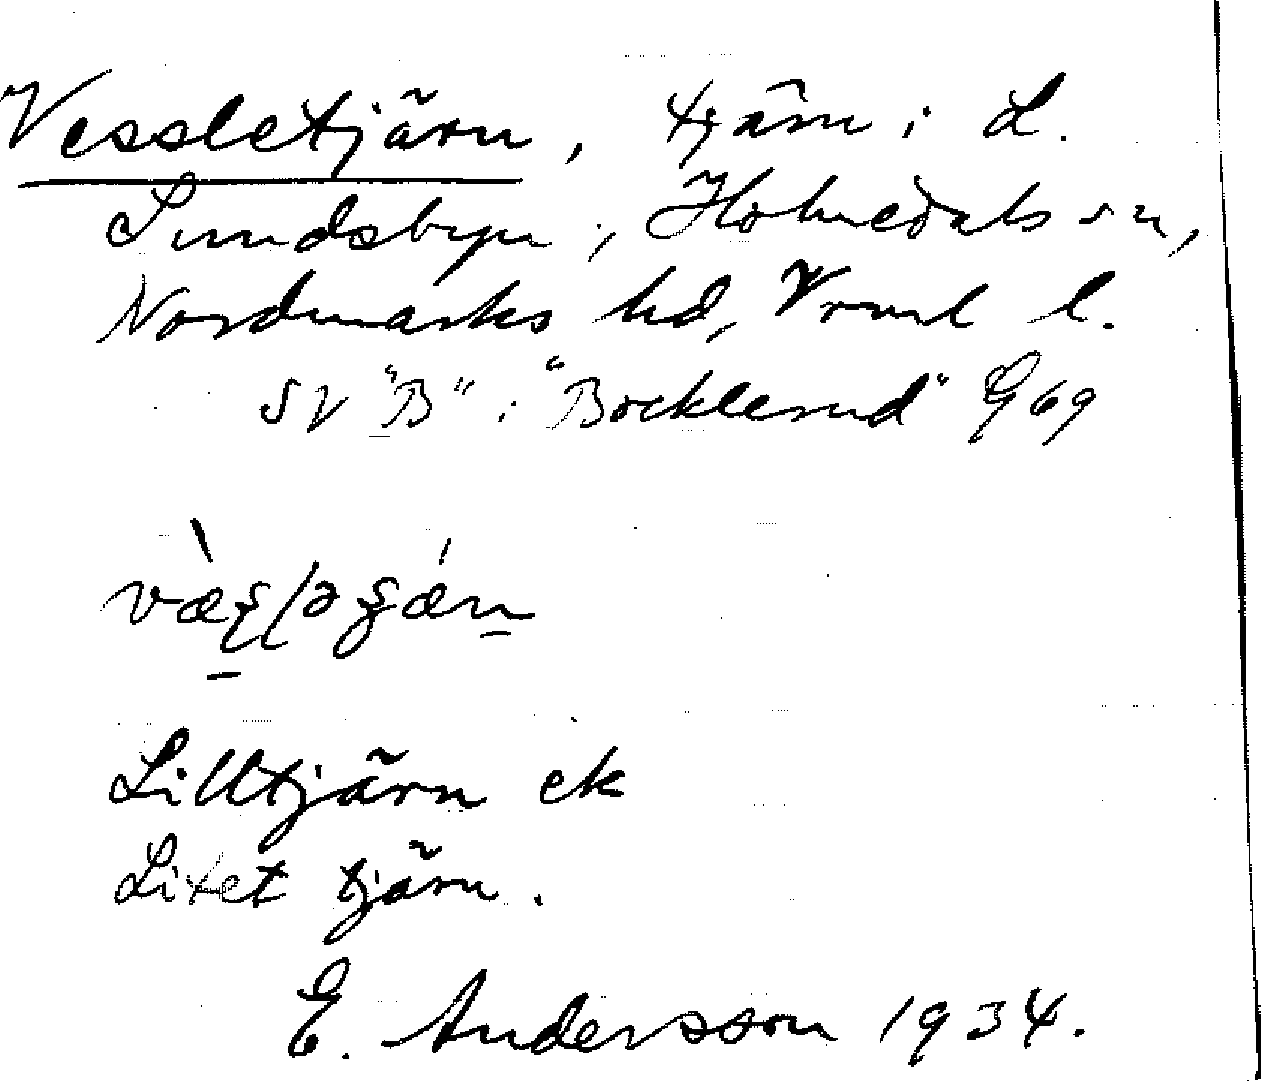 Vessletjärn, tjärn i L.
Sundsbyn, Holmedals sn,
Nordmarks hd, Vrml l.
SV "B" i "Bocklerud" G 69
Lilltjärn ek
Litet tjärn.
E. Andersson 1934.